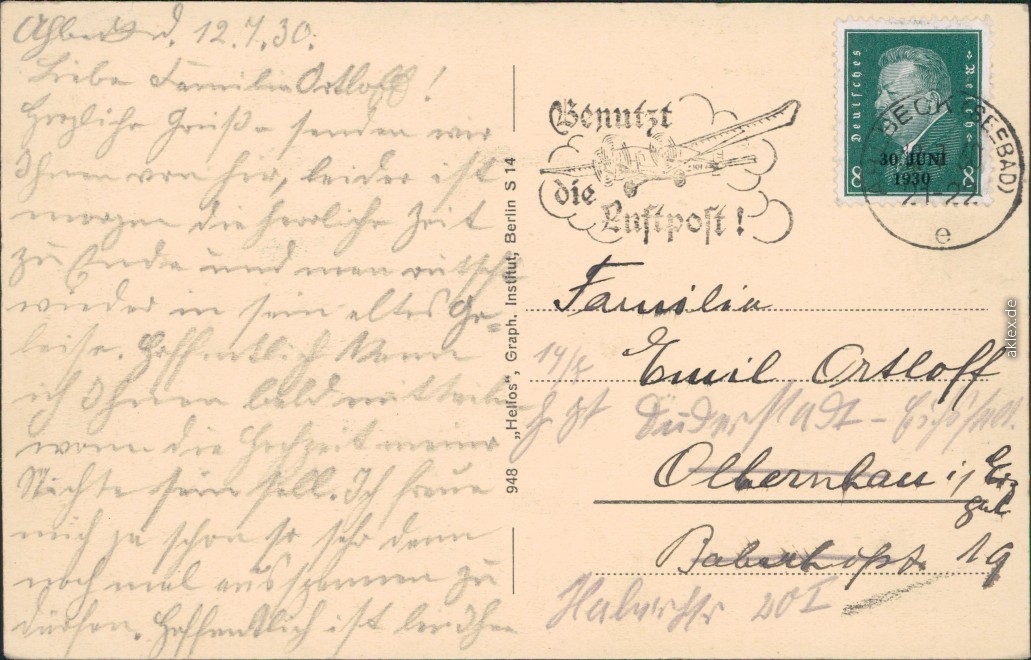 Ahlbeck d. 12.7.30.
Liebe Familie Ortloff!
Herzliche Grüße senden wir
Ihnen von hier, leider ist
morgen die herrliche Zeit
zu Ende und man rutscht
wieder in sein altes Ge-
leise. Hoffentlich kann
ich Ihnen bald mitteilen
wann die Hochzeit meiner
Nichte sein soll. Ich freue
mich ja schon so sehr dann
noch mal aus spannen zu
dürfen. Hoffentlich ist bei Ihnen
948 „Helios", Graph. Institut, Berlin S 14
Benutzt
die
Luftpost!
Deutsches Reich
30. JUNI
1930
8 8
AHLBECK (SEEBAD)
e
Familie
Emil Ortloff
14/7
Duderstadt - Eichsfeld.
Olbernhau i/ Erz-
geb
19
20 I
aklex.de